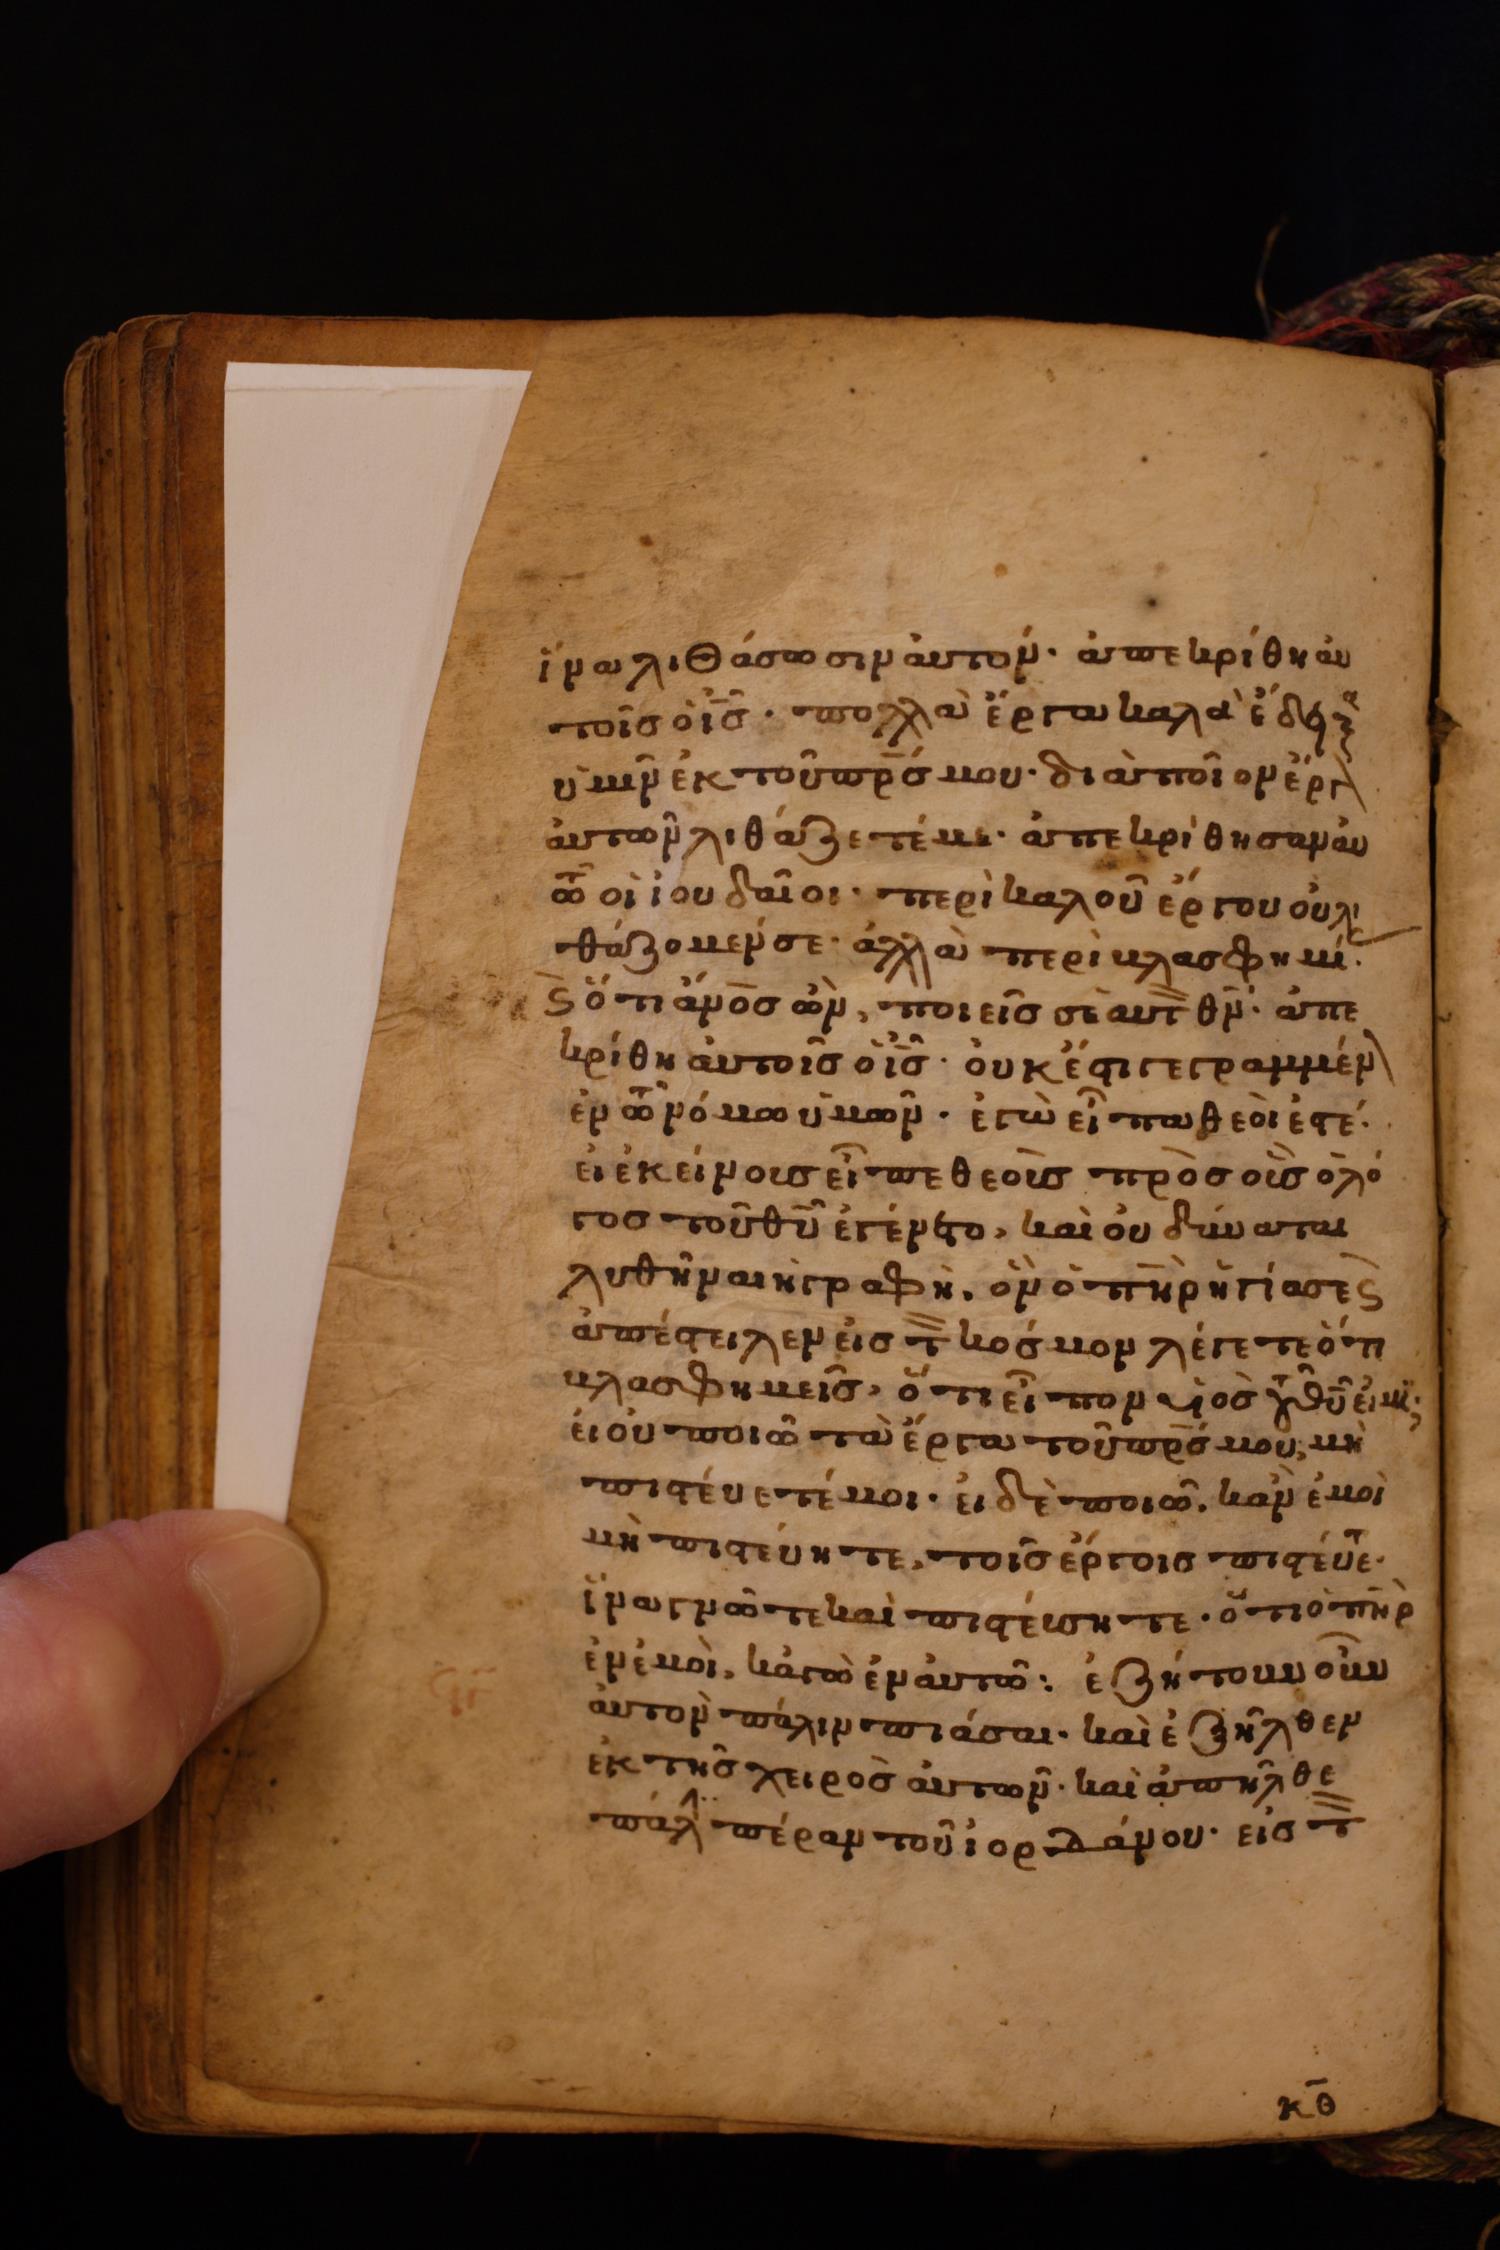 ἵνα λιθάσωσιν ἀυτόν· ἀπεκρίθη ἀυ
τοῖσ ὁ ἰ̅σ̅· πολλὰ ἔργα καλὰ ἔδειξα
ὑμῖν ἐκ τοῦ π̅ρ̅σ̅ μου· διὰ ποῖον ἔργ
ἀυτῶν λιθάζετέ με· ἀπεκρίθησαν ἀυ
τῶ οἱ ἰουδαῖοι· περὶ καλοῦ ἔργου οὐ λι
θάζομέν σε· ἀλλὰ περὶ βλασφημί
ς ὅτι ἄ̅ν̅ο̅σ̅ ὢν, ποιεῖσ σὲαυτ θ̅ν̅· ἀπε
κρίθη ἀυτοῖσ ὁ ἰ̅σ̅· ὀυκ ἔστι γεγραμμέν
ἐν τῶ νόμω ὑμῶν· ἐγὼ εἶπα θεὸι ἐστέ·
ἐι ἐκείνουσ εἶπε θεοὺσ πρὸσ οὓσ ὁ λό
γοσ τοῦ θ̅υ̅ ἐγένετο, καὶ ὀυ δύναται
λυθῆναι ἡ γραφὴ. ὃν ὁ π̅η̅ρ̅ ἡγίασε ς
ἀπέστειλεν ἐισ τ κόσμον λέγετε ὅτι
βλασφημεῖσ, ὅτι εἶπον υἱὸσ τοῦ θ̅υ̅ ἐιμι;
ἐι ὀυ ποιῶ τὰ ἔργα τοῦ π̅ρ̅σ̅ μου, μὴ
πιστέυετέ μοι· ἐι δὲ ποιῶ. κἀν ἐμοὶ
μὴ πιστέυητε, τοῖσ ἔργοισ πιστέυτε·
ἵνα γνῶτε καὶ πιστέυσητε· ὅτι ὁ π̅η̅ρ̅
ἐν ἐμοὶ, κἀγὼ ἐν ἀυτῶ: ἐζήτουν οὖν
ἀυτὸν πάλιν πιάσαι· καὶ ἐξῆλθεν
ἐκ τῆσ χειρὸσ ἀυτῶν· καὶ ἀπῆλθε
πάλ πέραν τοῦ ἰορδάνου· εἰσ τ
κ̅θ̅